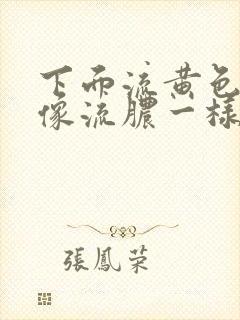 下面流黄色
像流脓一样
張鳳荣